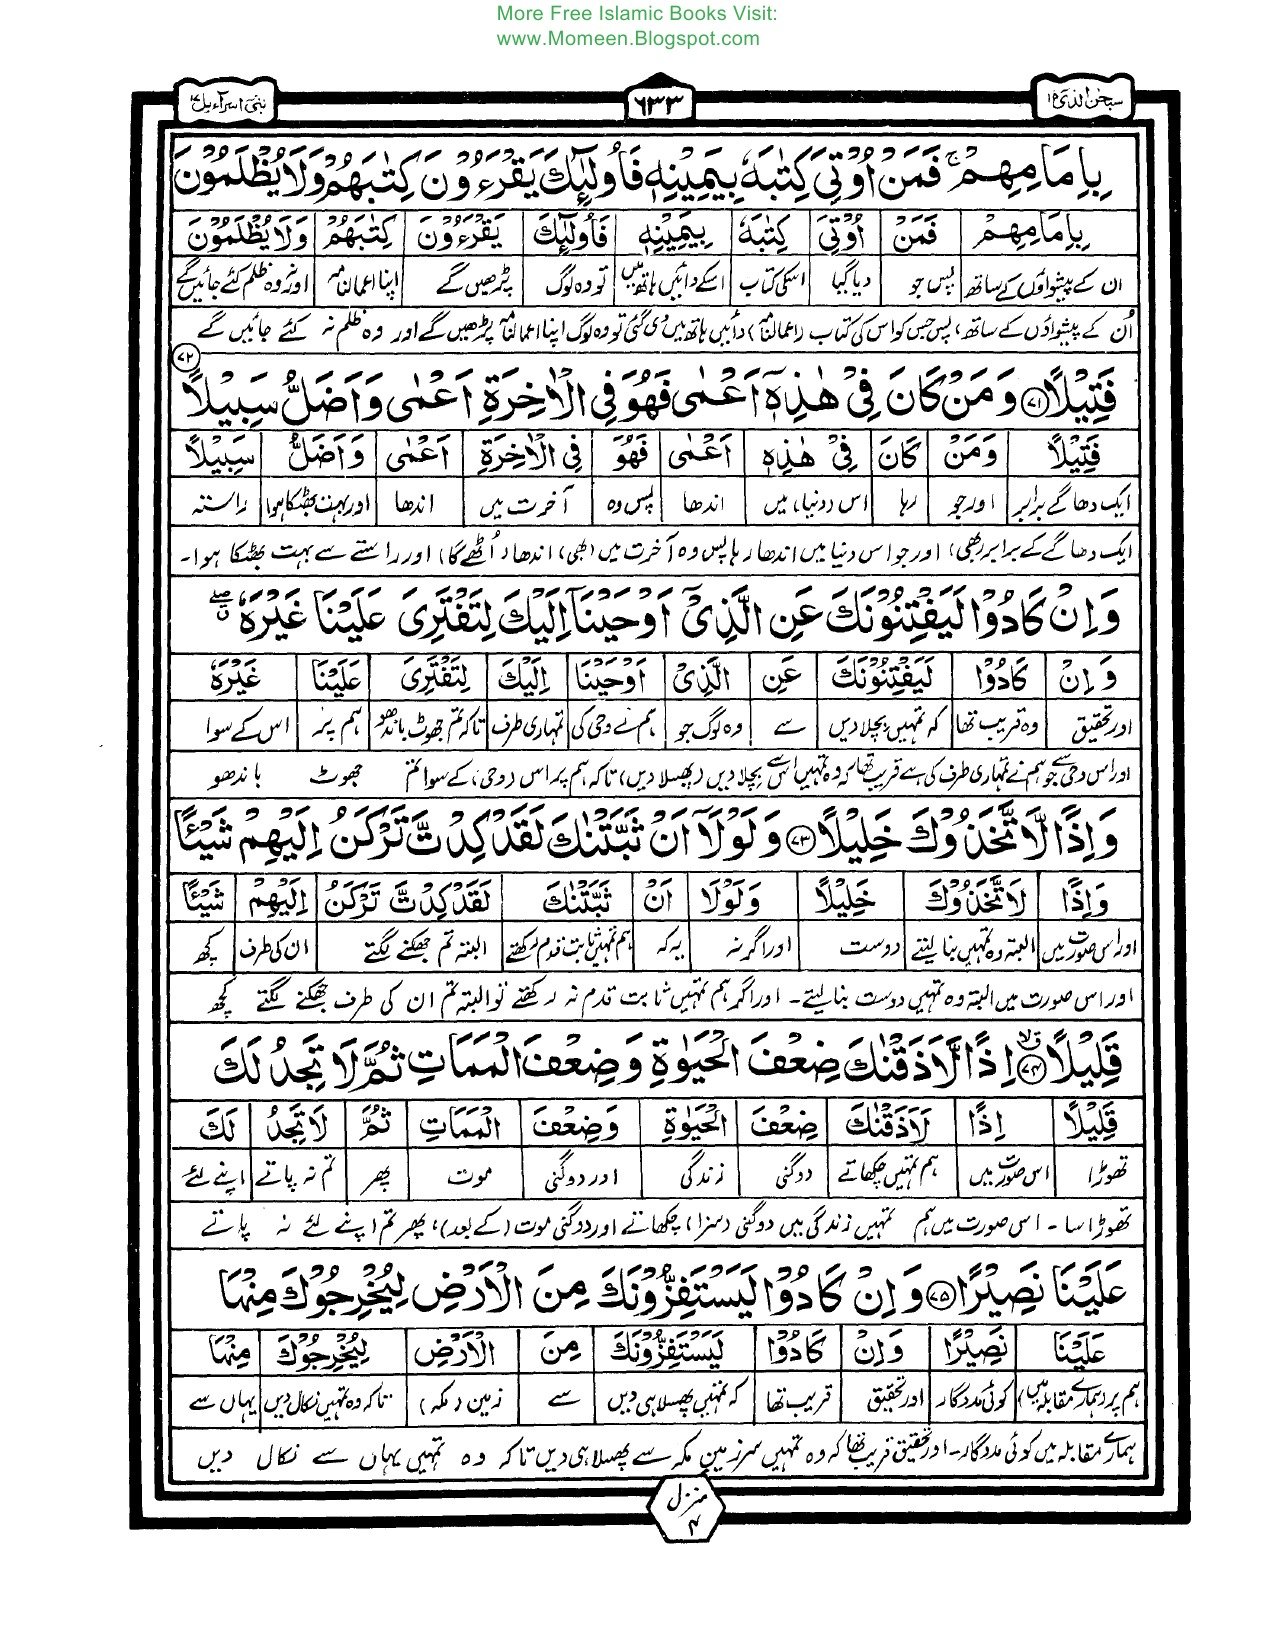 More Free Islamic Books Visit:
www.Momeen.Blogspot.com
سبحٰن الذی ۱۵ ۶۳۳ بنی اسرآءیل ۱۷
بِاِمَامِهِمْ ۚ فَمَنْ اُوْتِیَ كِتٰبَهٗ بِیَمِیْنِهٖ فَاُولٰٓىِٕكَ یَقْرَءُوْنَ كِتٰبَهُمْ وَلَا یُظْلَمُوْنَ
بِاِمَامِهِمْ فَمَنْ اُوْتِیَ كِتٰبَهٗ بِیَمِیْنِهٖ فَاُولٰٓىِٕكَ یَقْرَءُوْنَ كِتٰبَهُمْ وَلَا یُظْلَمُوْنَ
ان کے پیشواؤں کے ساتھ پس جو دیا گیا اسکی کتاب اسکے دائیں ہاتھ میں تو وہ لوگ پڑھیں گے اپنا اعمالنامہ اور نہ وہ ظلم کئے جائیں گے
اُن کے پیشواؤں کے ساتھ، پس جس کو اس کی کتاب (اعمالنامہ) دائیں ہاتھ میں دی گئی تو وہ لوگ اپنا اعمالنامہ پڑھیں گے اور وہ ظلم نہ کئے جائیں گے
فَتِیْلًا ۷۱ وَمَنْ كَانَ فِیْ هٰذِهٖۤ اَعْمٰی فَهُوَ فِی الْاٰخِرَةِ اَعْمٰی وَاَضَلُّ سَبِیْلًا ۷۲
فَتِیْلًا وَمَنْ كَانَ فِیْ هٰذِهٖ اَعْمٰی فَهُوَ فِی الْاٰخِرَةِ اَعْمٰی وَاَضَلُّ سَبِیْلًا
ایک دھاگے برابر اور جو رہا اس (دنیا) میں اندھا پس وہ آخرت میں اندھا اور بہت بھٹکا ہوا راستہ
ایک دھاگے کے برابر (بھی) اور جو اس دنیا میں اندھا رہا پس وہ آخرت میں (بھی) اندھا (اُٹھے گا) اور راستے سے بہت بھٹکا ہوا۔
وَاِنْ كَادُوْا لَیَفْتِنُوْنَكَ عَنِ الَّذِیْۤ اَوْحَیْنَاۤ اِلَیْكَ لِتَفْتَرِیَ عَلَیْنَا غَیْرَهٗ ۖ
وَاِنْ كَادُوْا لَیَفْتِنُوْنَكَ عَنِ الَّذِیْ اَوْحَیْنَا اِلَیْكَ لِتَفْتَرِیَ عَلَیْنَا غَیْرَهٗ
اور تحقیق وہ قریب تھا کہ تمہیں بچلا دیں سے وہ لوگ جو ہم نے وحی کی تمہاری طرف تاکہ تم جھوٹ باندھو ہم پر اس کے سوا
اور اس وحی سے جو ہم نے تمہاری طرف کی ہے قریب تھا کہ وہ تمہیں اس سے بچلا دیں (پھسلا دیں) تاکہ ہم پر اس (وحی) کے سوا تم جھوٹ باندھو
وَاِذًا لَّاتَّخَذُوْكَ خَلِیْلًا ۷۳ وَلَوْلَاۤ اَنْ ثَبَّتْنٰكَ لَقَدْ كِدْتَّ تَرْكَنُ اِلَیْهِمْ شَیْـًٔا
وَاِذًا لَاتَّخَذُوْكَ خَلِیْلًا وَلَوْلَا اَنْ ثَبَّتْنٰكَ لَقَدْ كِدْتَّ تَرْكَنُ اِلَیْهِمْ شَیْـًٔا
اور اس صورت میں البتہ وہ تمہیں بنا لیتے دوست اور اگر نہ یہ کہ ہم تمہیں ثابت قدم رکھتے البتہ تم جھکنے لگتے ان کی طرف کچھ
اور اس صورت میں البتہ وہ تمہیں دوست بنا لیتے۔ اور اگر ہم تمہیں ثابت قدم نہ رکھتے تو البتہ تم ان کی طرف جھکنے لگتے کچھ
قَلِیْلًا ۷۴ اِذًا لَّاَذَقْنٰكَ ضِعْفَ الْحَیٰوةِ وَضِعْفَ الْمَمَاتِ ثُمَّ لَا تَجِدُ لَكَ
قَلِیْلًا اِذًا لَاَذَقْنٰكَ ضِعْفَ الْحَیٰوةِ وَضِعْفَ الْمَمَاتِ ثُمَّ لَا تَجِدُ لَكَ
تھوڑا اس صورت میں ہم تمہیں چکھاتے دوگنی زندگی اور دوگنی موت پھر تم نہ پاتے اپنے لئے
تھوڑا سا۔ اس صورت میں ہم تمہیں زندگی میں دوگنی (سزا) چکھاتے اور دوگنی موت (کے بعد)، پھر تم اپنے لئے نہ پاتے
عَلَیْنَا نَصِیْرًا ۷۵ وَاِنْ كَادُوْا لَیَسْتَفِزُّوْنَكَ مِنَ الْاَرْضِ لِیُخْرِجُوْكَ مِنْهَا
عَلَیْنَا نَصِیْرًا وَاِنْ كَادُوْا لَیَسْتَفِزُّوْنَكَ مِنَ الْاَرْضِ لِیُخْرِجُوْكَ مِنْهَا
ہم پر (ہمارے مقابلہ میں) کوئی مددگار اور تحقیق قریب تھا کہ تمہیں پھسلا ہی دیں سے زمین (مکہ) تاکہ وہ تمہیں نکال دیں یہاں سے
ہمارے مقابلہ میں کوئی مددگار۔ اور تحقیق قریب تھا کہ وہ تمہیں سرزمینِ مکہ سے پھسلا ہی دیں تاکہ وہ تمہیں یہاں سے نکال دیں
منزل
۴